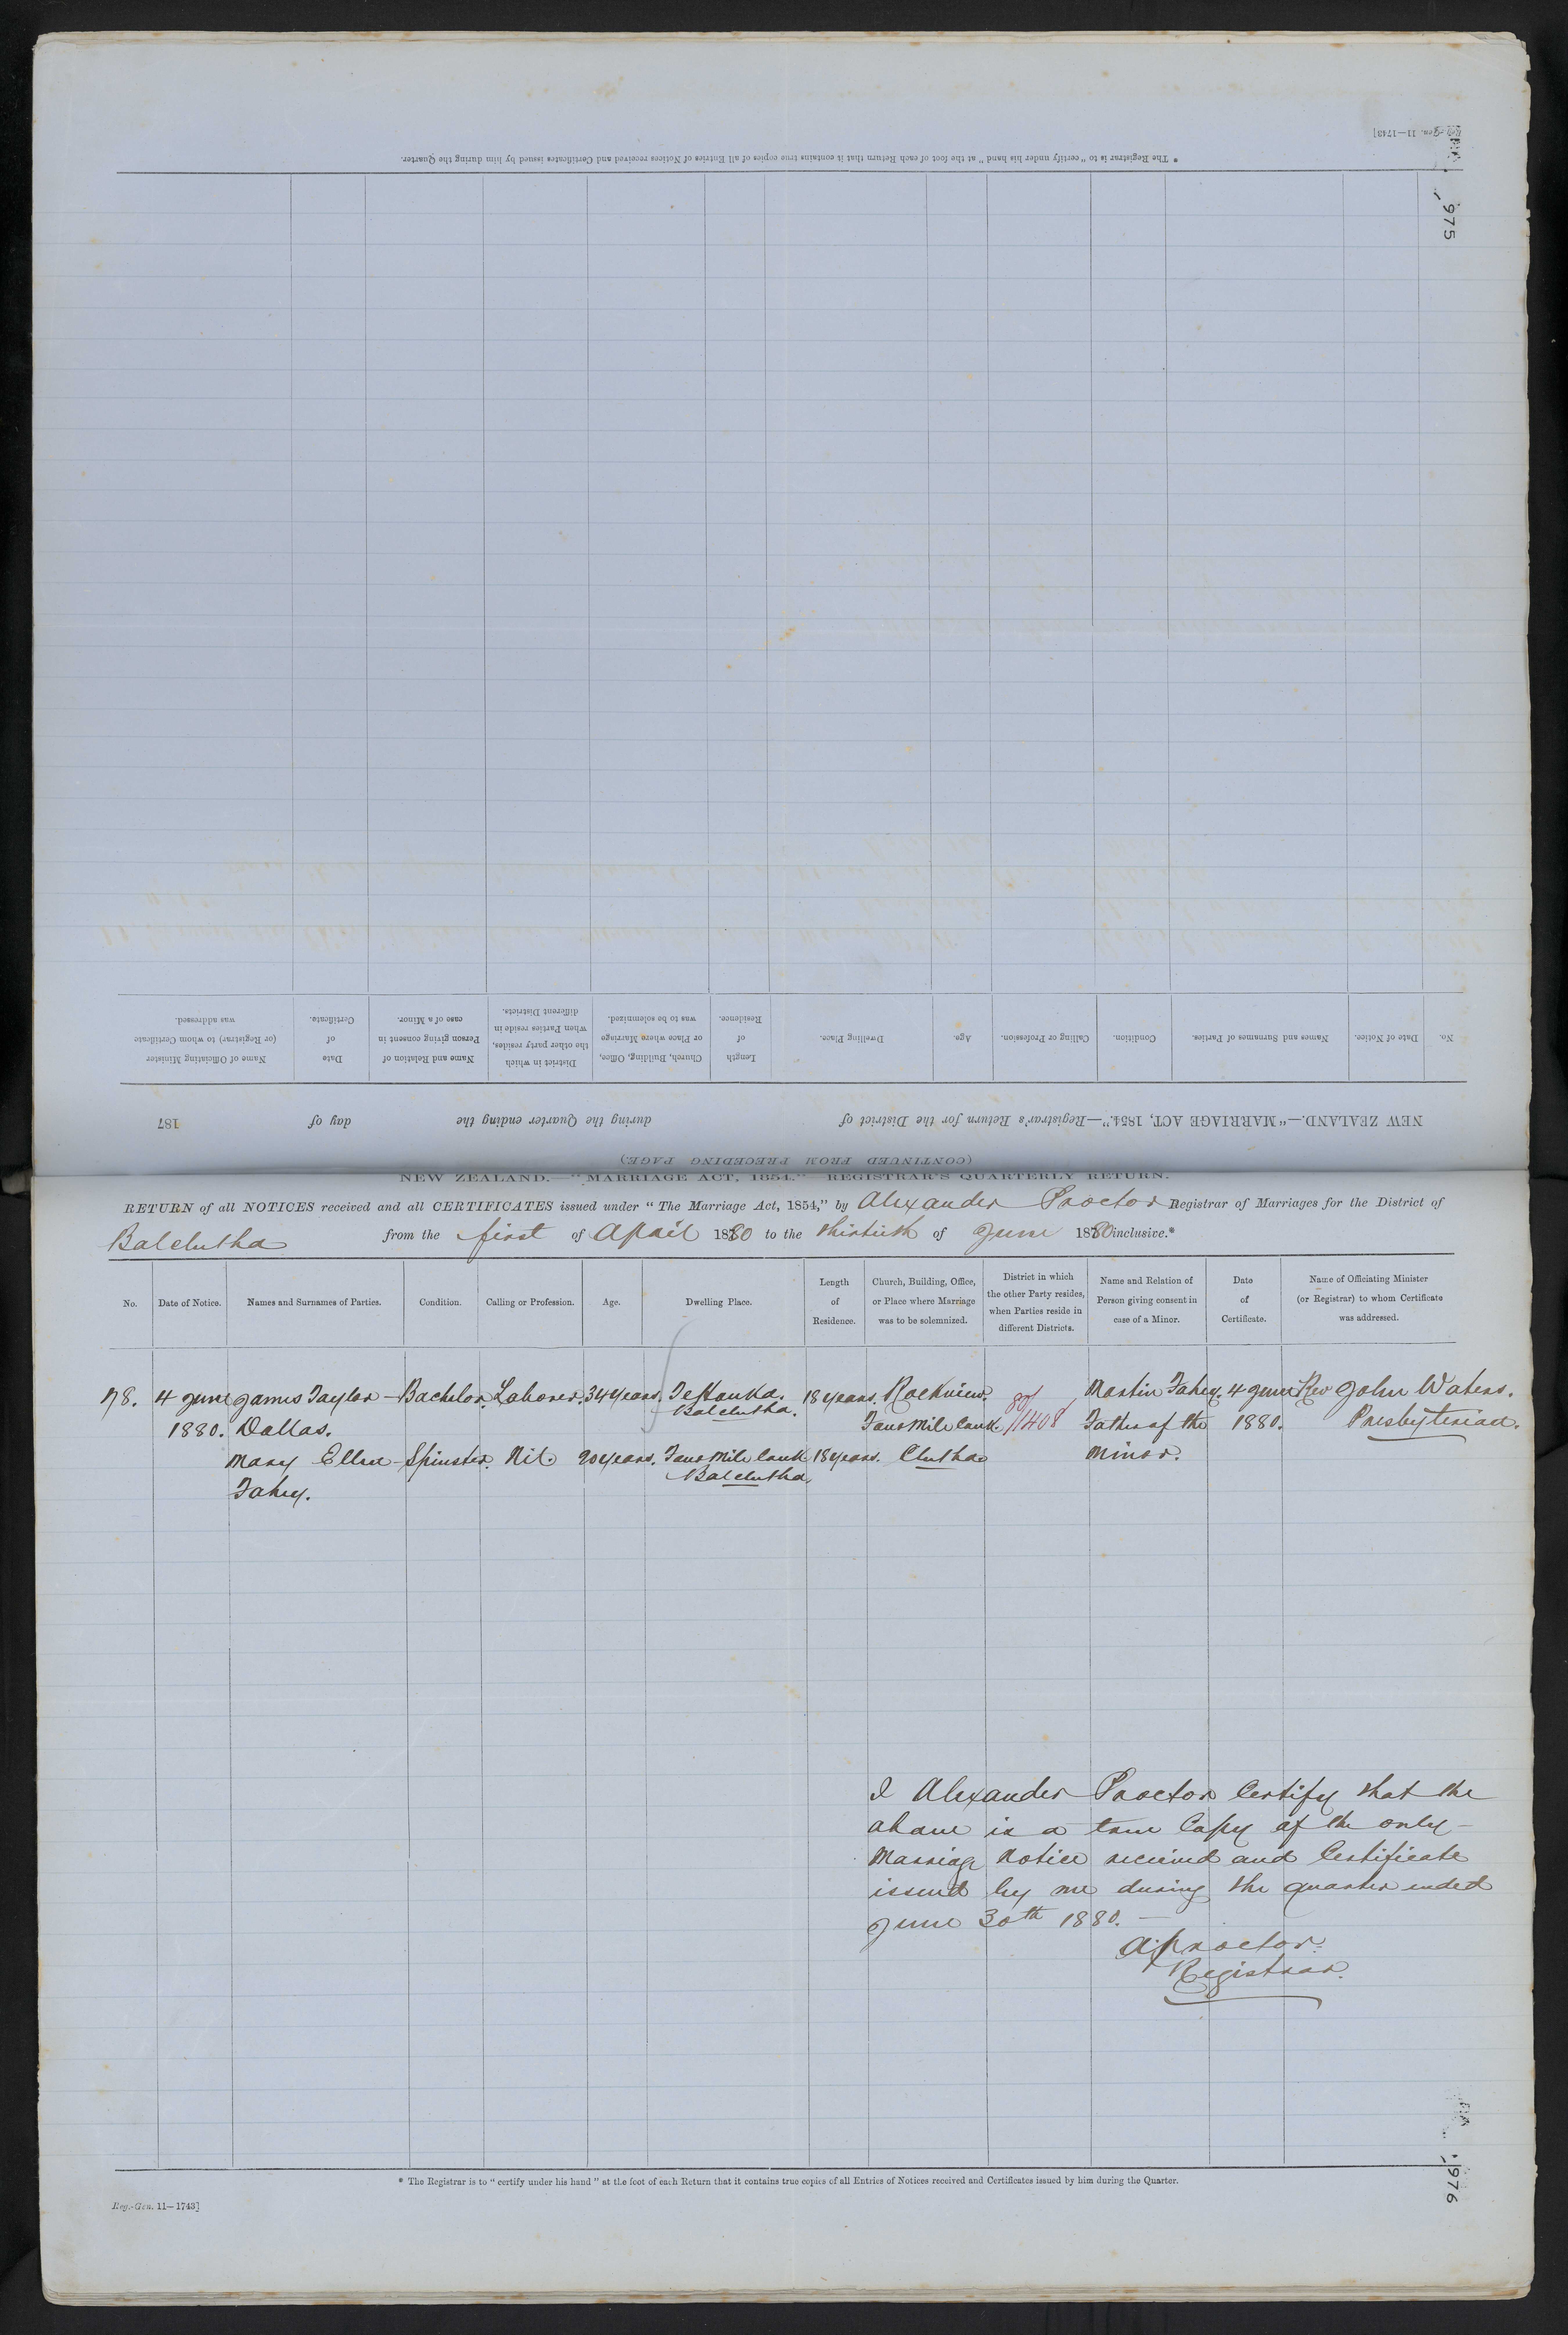 Reg.-Gen. 11—1743]
* The Registrar is to "certify under his hand" at the foot of each Return that it contains true copies of all Entries of Notices received and Certificates issued by him during the Quarter.
975
No.
Date of Notice.
Names and Surnames of Parties.
Condition.
Calling or Profession.
Age.
Dwelling Place.
Length
of
Residence.
Church, Building, Office,
or Place where Marriage
was to be solemnized.
District in which
the other party resides,
when Parties reside in
different Districts.
Name and Relation of
Person giving consent in
case of a Minor.
Date
of
Certificate.
Name of Officiating Minister
(or Registrar) to whom Certificate
was addressed.
NEW ZEALAND.—"MARRIAGE ACT, 1854."—Registrar's Return for the District of during the Quarter ending the day of 187
(CONTINUED FROM PRECEDING PAGE.)
NEW ZEALAND.—"MARRIAGE ACT, 1854."—REGISTRAR'S QUARTERLY RETURN.
RETURN of all NOTICES received and all CERTIFICATES issued under "The Marriage Act, 1854," by Alexander Proctor Registrar of Marriages for the District of
Balclutha from the first of April 1880 to the thirtieth of June 1880 inclusive.*
No.
Date of Notice.
Names and Surnames of Parties.
Condition.
Calling or Profession.
Age.
Dwelling Place.
Length
of
Residence.
Church, Building, Office,
or Place where Marriage
was to be solemnized.
District in which
the other Party resides,
when Parties reside in
different Districts.
Name and Relation of
Person giving consent in
case of a Minor.
Date
of
Certificate.
Name of Officiating Minister
(or Registrar) to whom Certificate
was addressed.
78. 4 June James Taylor Bachelor. Laborer. 34 years. Te Houka. 18 years. Rockview. 80/1408 Martin Fahey. 4 June Rev John Waters.
Balclutha.
1880. Dallas. Four Mile Creek Father of the 1880. Presbyterian.
Mary Ellen Spinster. Nil. 20 years. Four Mile Creek 18 years. Clutha Minor.
Balclutha.
Fahey.
I Alexander Proctor Certify that the
above is a true Copy of the only
Marriage Notice received and Certificate
issued by me during the quarter ended
June 30th 1880.
A. Proctor.
Registrar.
* The Registrar is to "certify under his hand" at the foot of each Return that it contains true copies of all Entries of Notices received and Certificates issued by him during the Quarter.
Reg.-Gen. 11—1743]
976